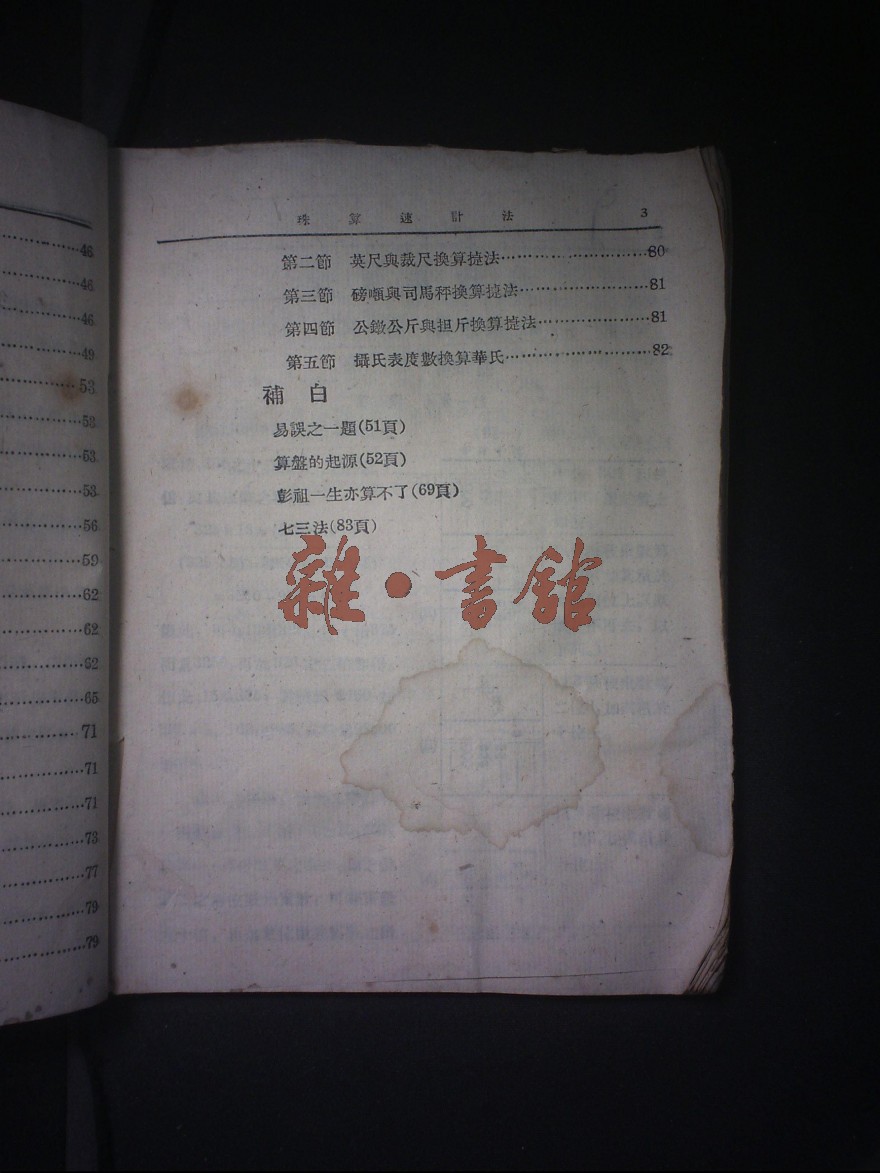 46
46
46
49
53
53
53
53
56
59
62
62
62
65
71
71
71
73
77
79
79
珠算速計法 3
第二節 英尺與裁尺換算捷法……………………80
第三節 磅噸與司馬秤換算捷法…………………81
第四節 公鐓公斤與担斤換算捷法………………81
第五節 攝氏表度數換算華氏……………………82
補白
易誤之一題(51頁)
算盤的起源(52頁)
彭祖一生亦算不了(69頁)
七三法(83頁)
雜·書館